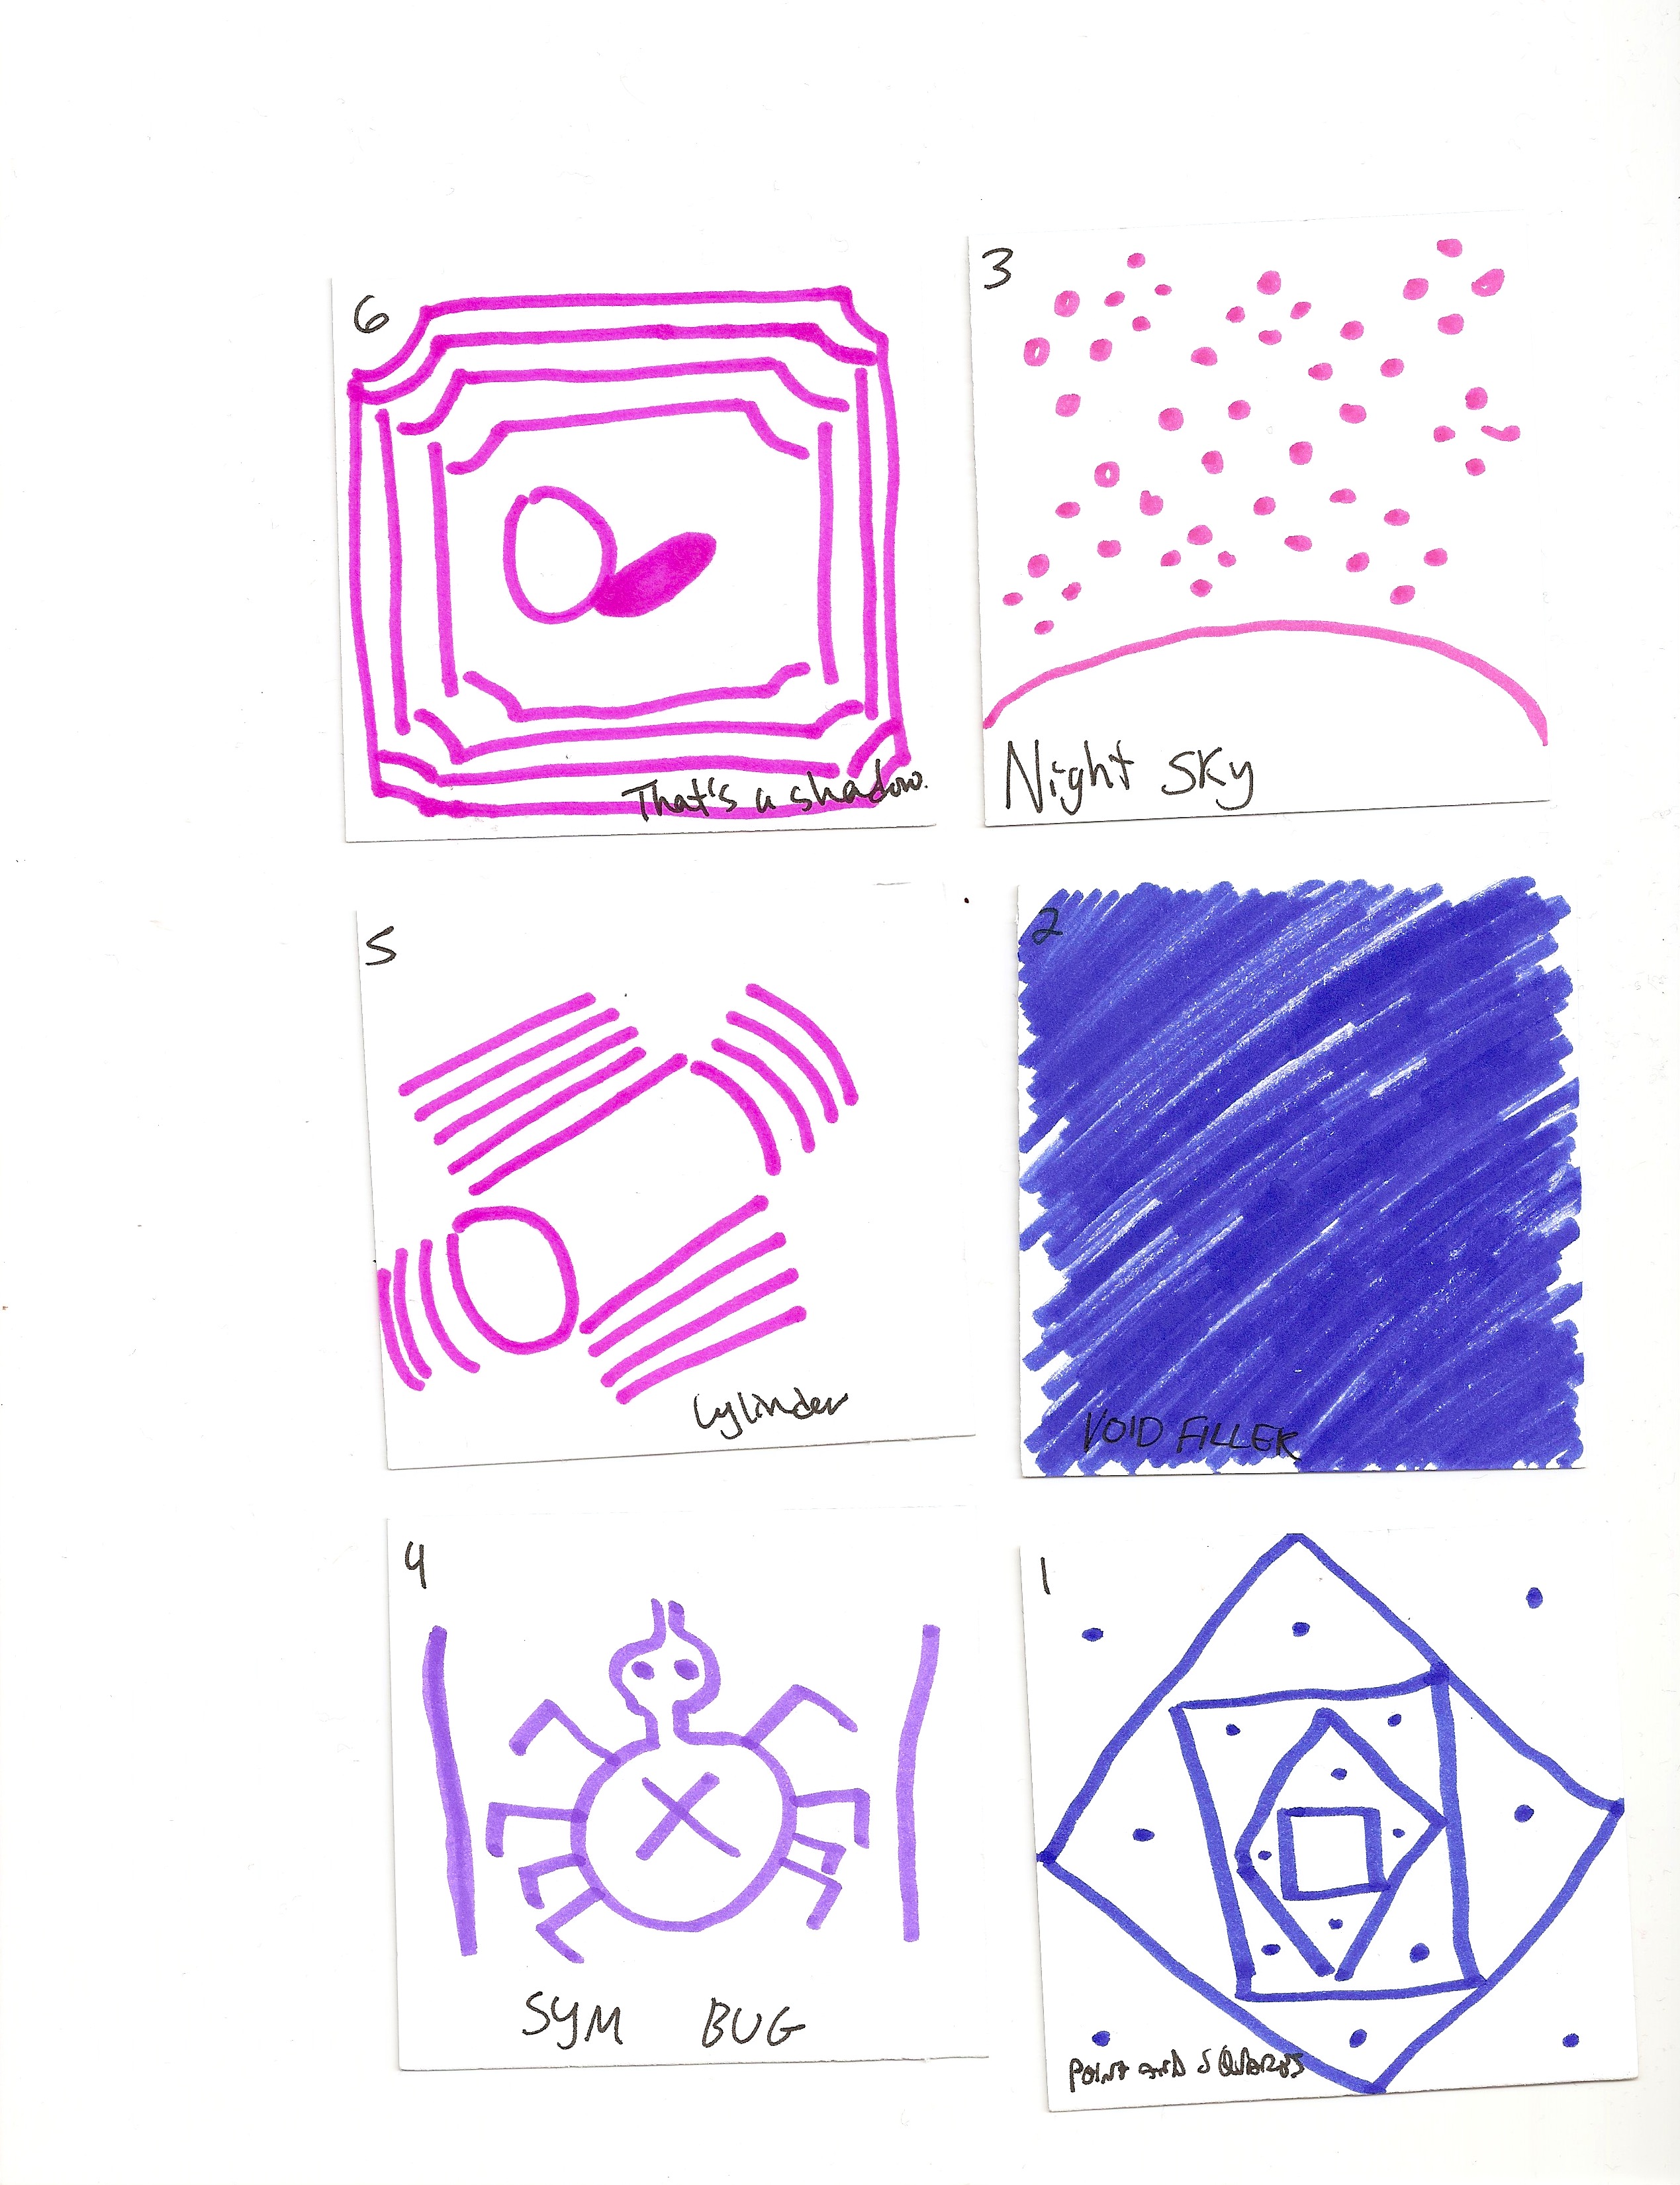 6
That's a shadow.
3
Night Sky
5
Cylinder
2
VOID FILLER
4
SYM BUG
1
POINT AND SQUARES